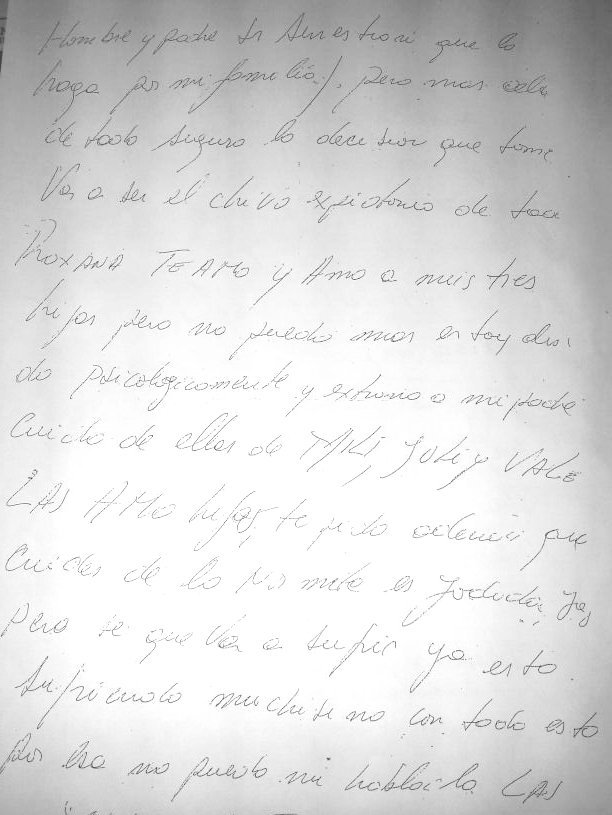 Hombre y padre
haga por mi familia). pero mas alla
de todo seguro la decision que tome
Va a ser el chivo expiatorio de
ROXANA TE AMO y Amo a mis tres
hijas pero no puedo mas estoy
do psicologicamente y extraño a mi padre
Cuida de ellas de MILI, JULI y VALE
LAS AMO hijas, te pido ademas que
cuides de la
pero se que va a sufrir ya esta
sufriendo muchisimo con todo esto
por eso no puedo ni hablarla LAS